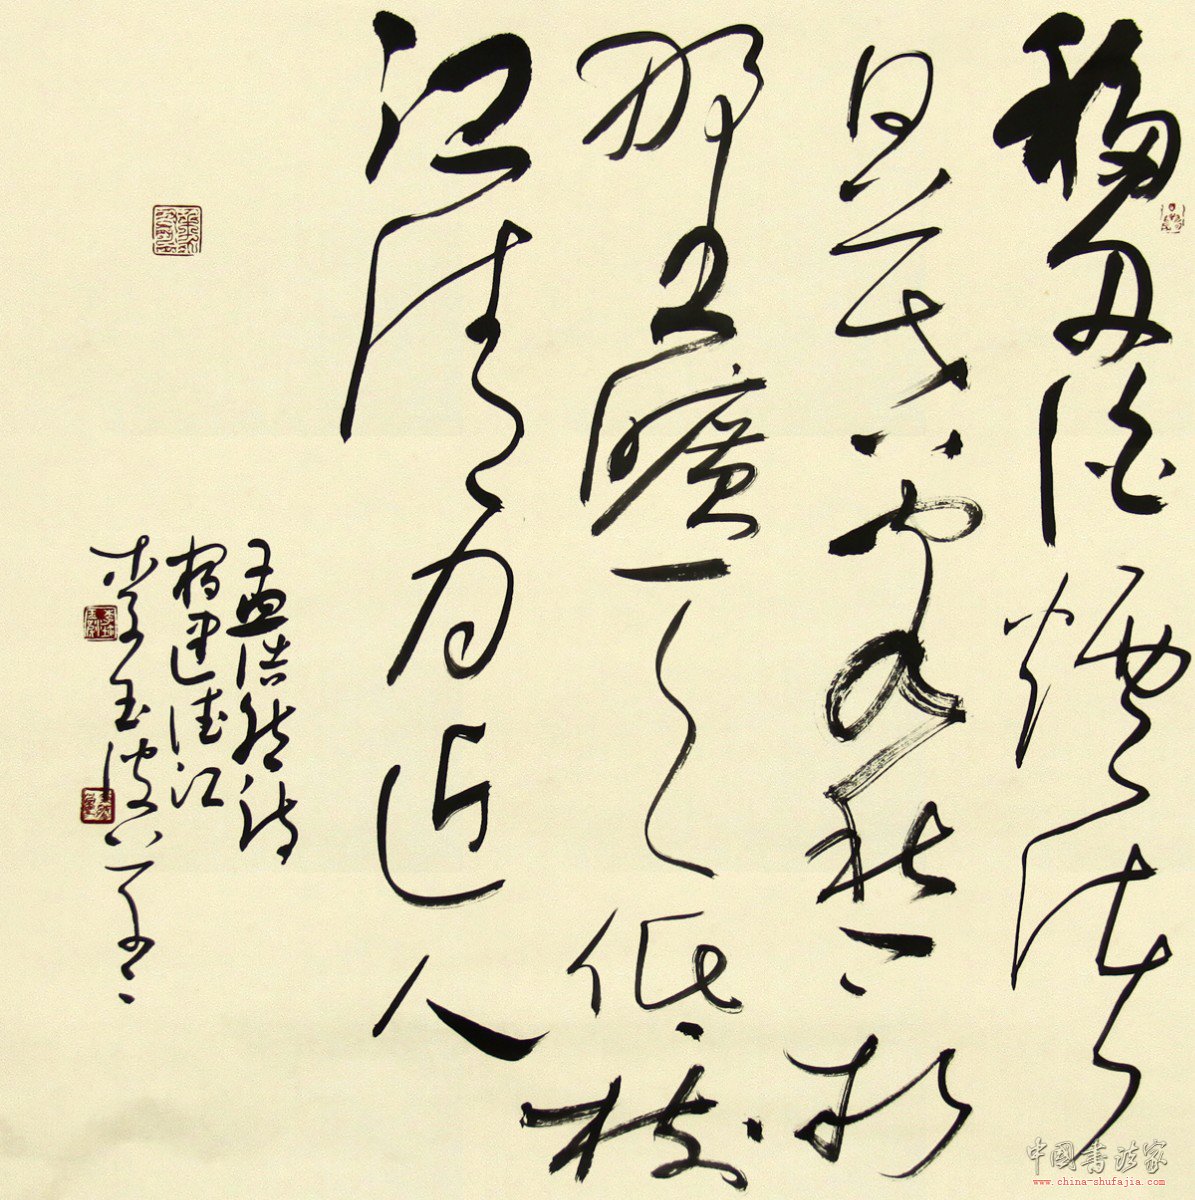 移舟泊煙渚
日暮客愁新
野曠天低樹
江清月近人
孟浩然詩
宿建德江
李玉波
中國書法家
www.china-shufajia.com